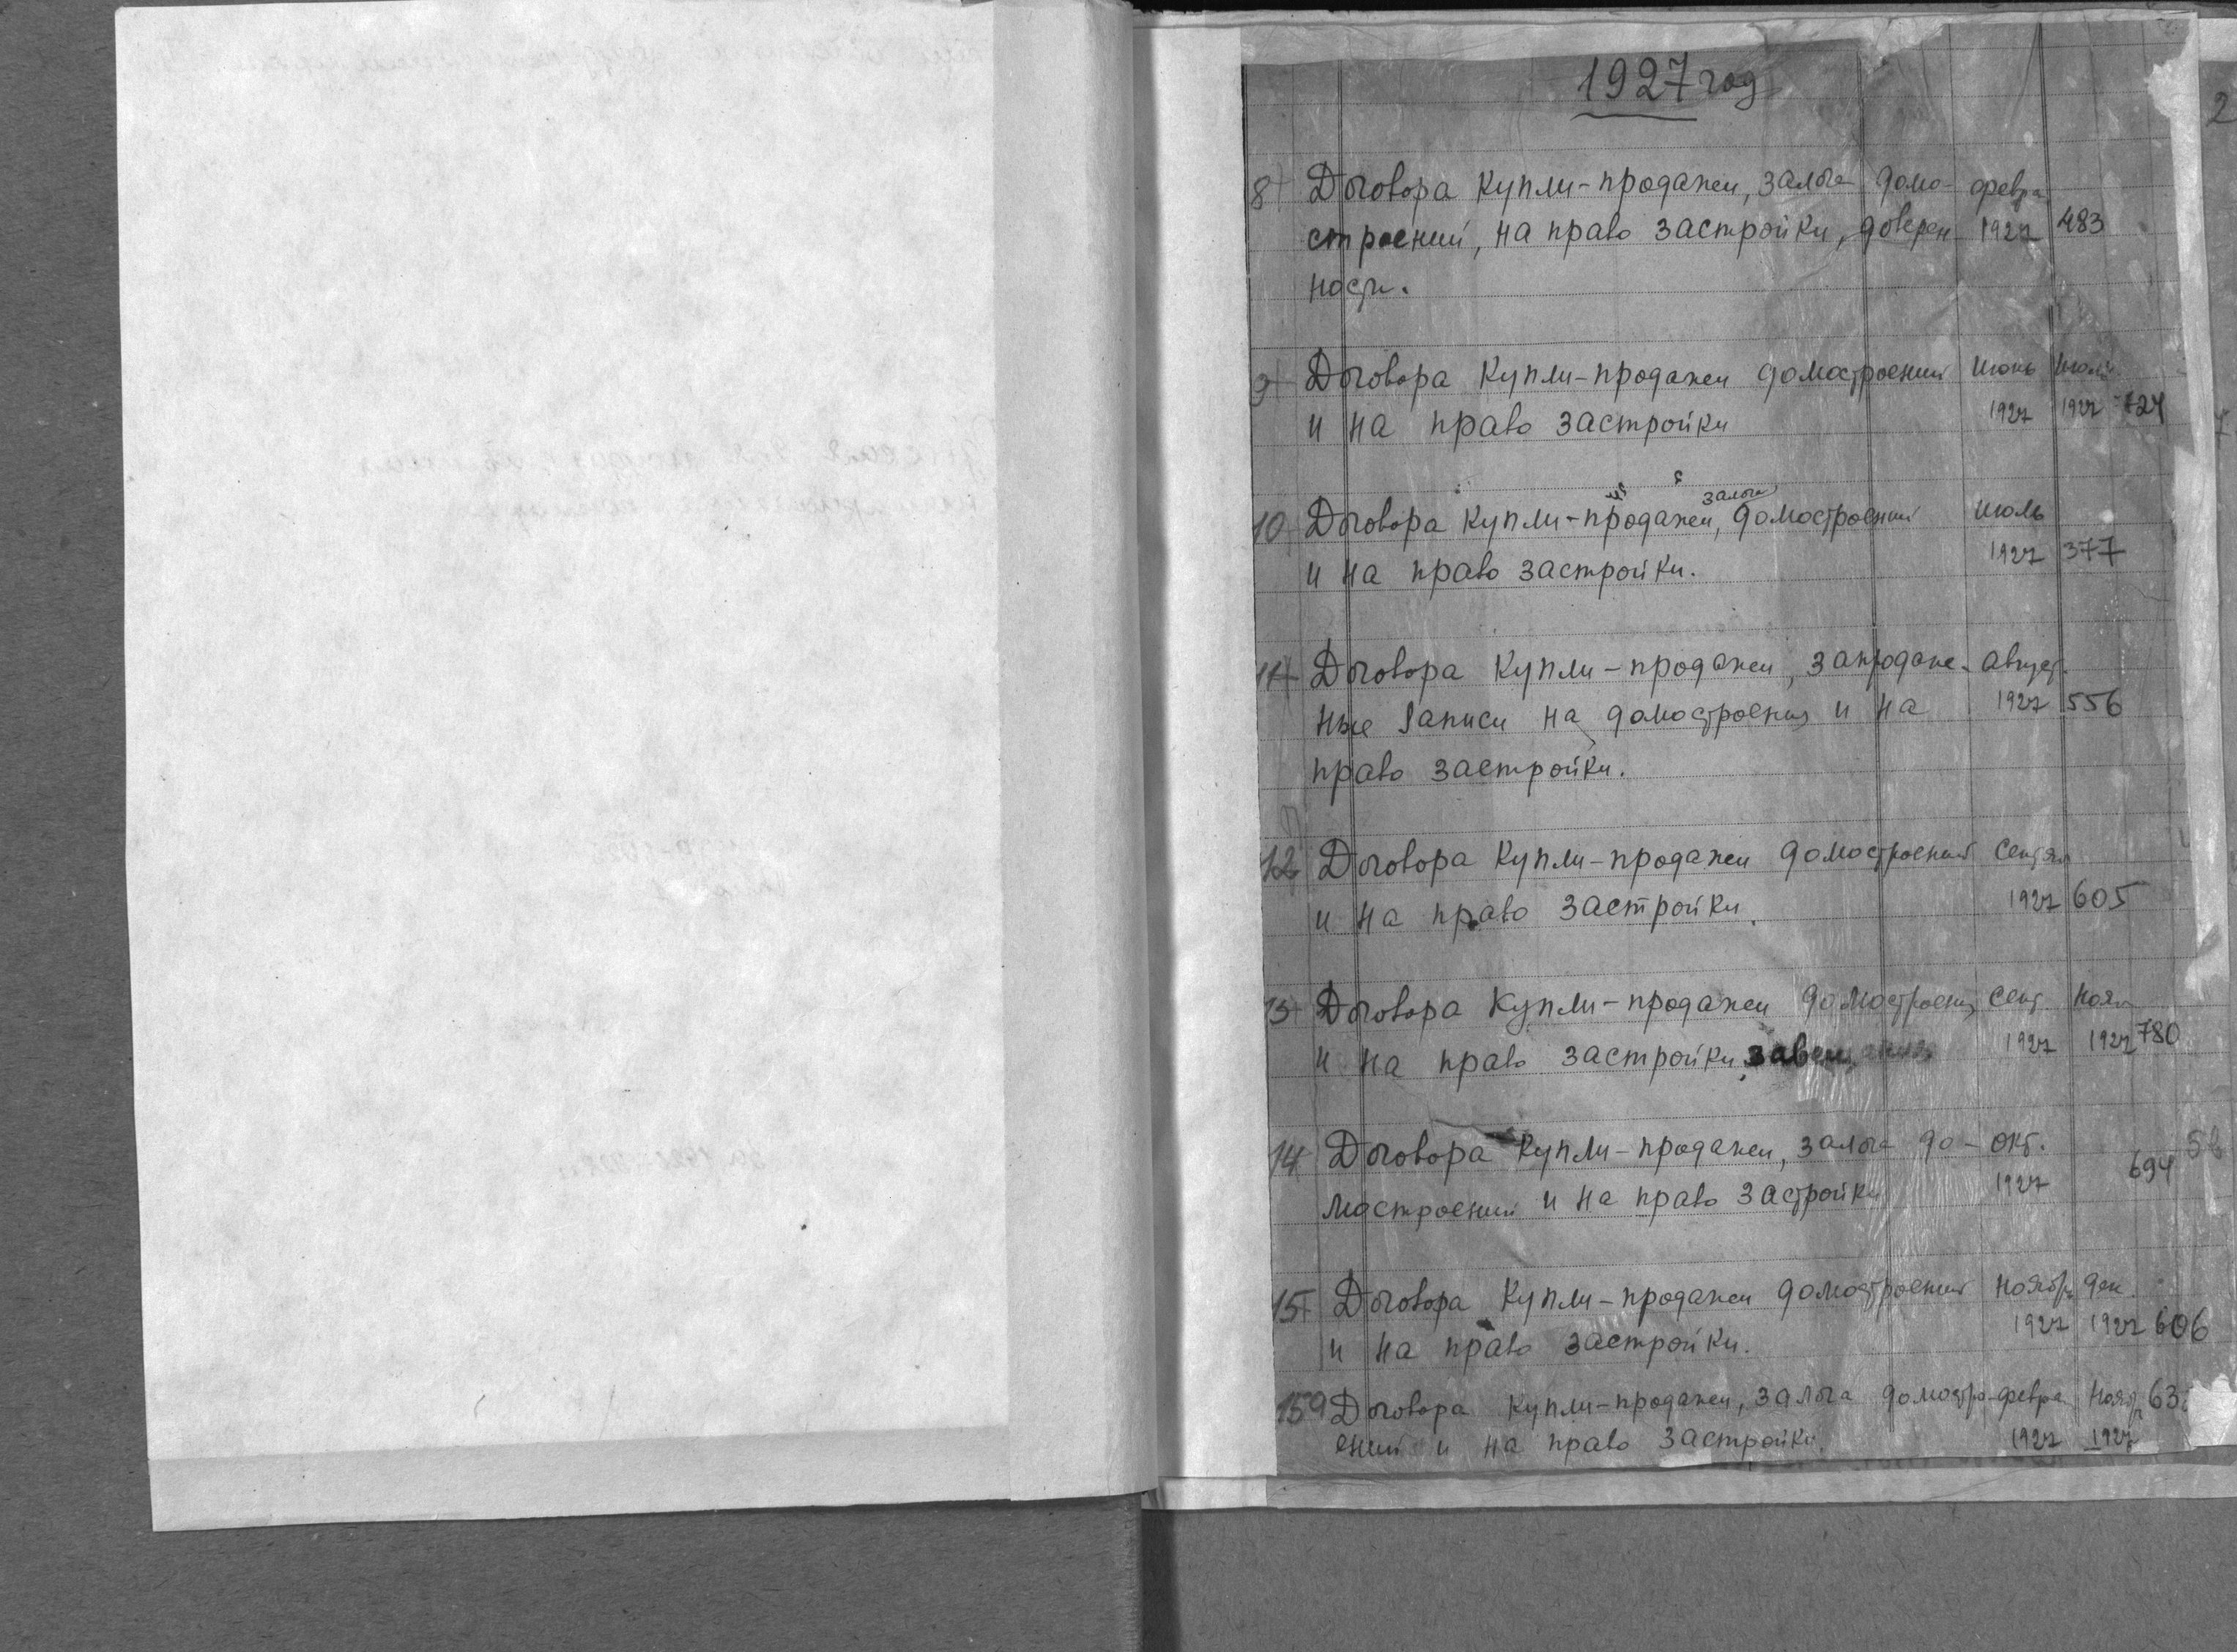 1927 год
2
8 Договора купли-продажи, залога домо- февра
строений, на право застройки, доверен- 1927 483
ности.
9 Договора купли-продажи домостроений июнь июль
и на право застройки 1927 1927 724
залога
10 Договора купли-продажи, домостроений июль
и на право застройки. 1927 377
11 Договора купли-продажи, запродаж- август.
ные записи на домостроения и на 1927 556
право застройки.
12 Договора купли-продажи домостроений сентяб
и на право застройки. 1927 605
13 Договора купли-продажи домостроений сент. нояб
и на право застройки, завещания 1927 1927 780
14 Договора купли-продажи, залога до- окт.
мостроений и на право застройки 1927 694
15 Договора купли-продажи домостроений ноябрь дек.
и на право застройки. 1927 1927 606
159 Договора купли-продажи, залога домостро- февра нояб
ений и на право застройки. 1927 1927